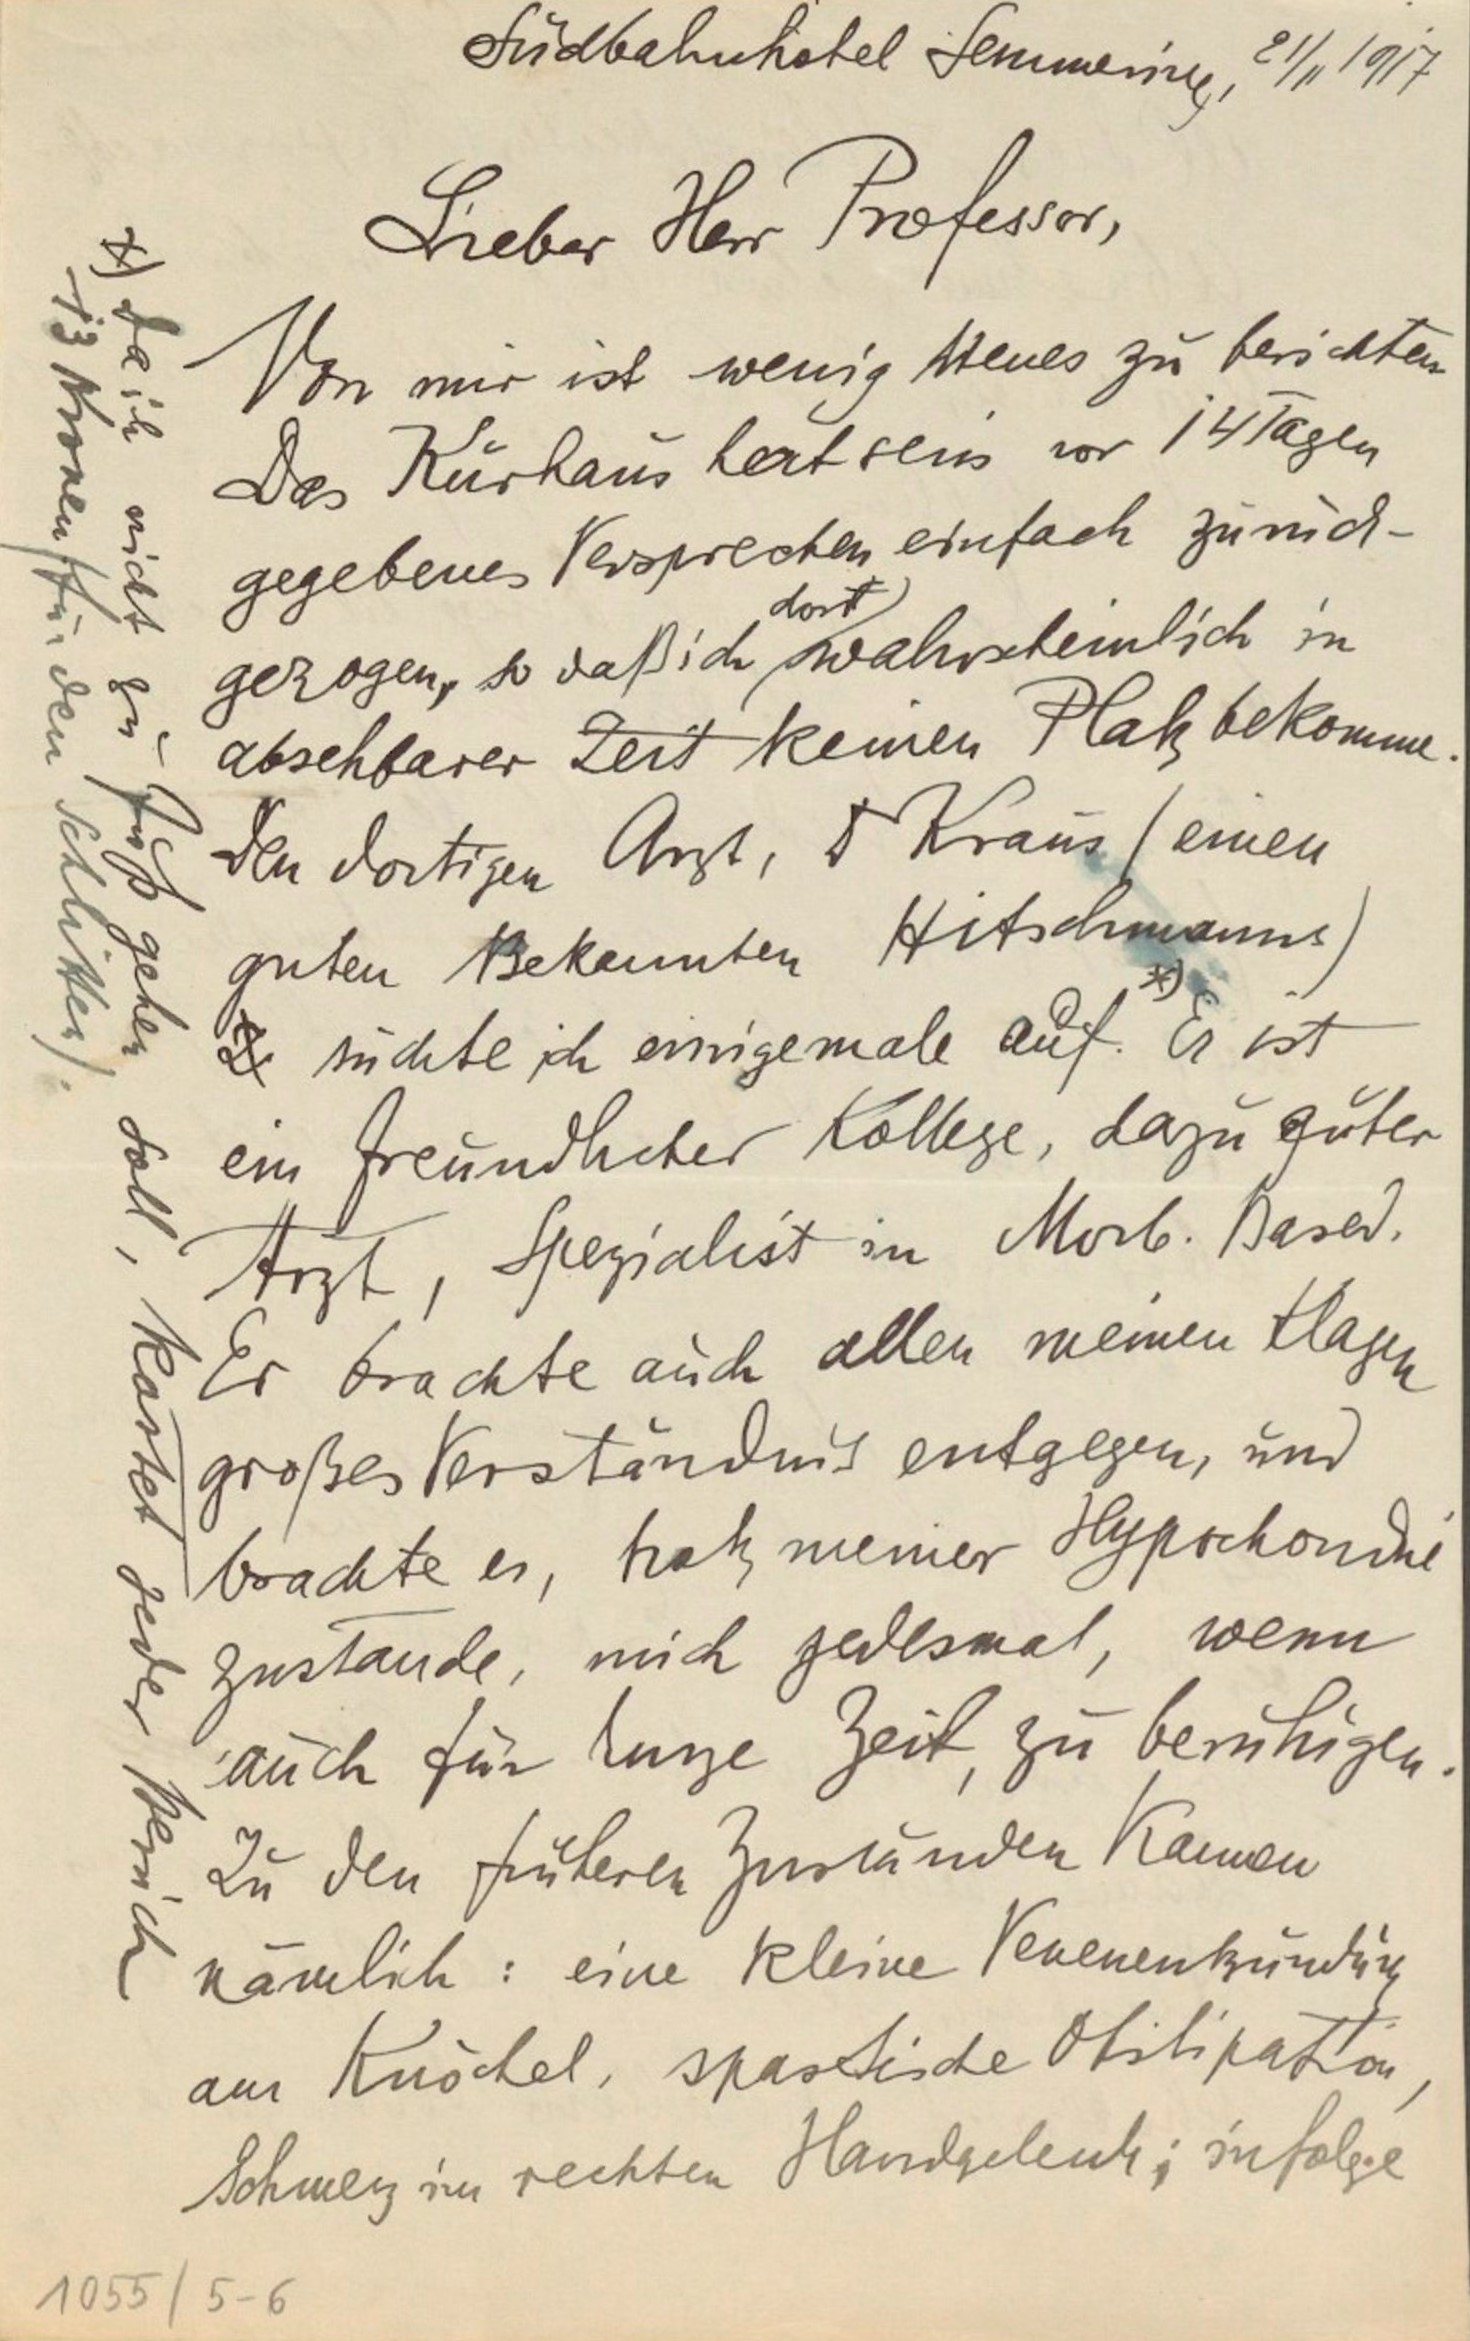 Südbahnhotel Semmering, 21/II 1917
Lieber Herr Professor,
Von mir ist wenig Neues zu berichten
Das Kurhaus hat sein vor 14 Tagen
gegebenes Versprechen einfach zurück-
gezogen, so daß ich dort wahrscheinlich in
absehbarer Zeit keinen Platz bekomme.
Den dortigen Arzt, Dr Kraus (einen
guten Bekannten Hitschmanns)
suchte ich einigemale auf. *) Er ist
ein freundlicher Kollege, dazu guter
Arzt, Spezialist in Morb. Based.
Er brachte auch allen meinen Klagen
großes Verständnis entgegen, und
brachte es, trotz meiner Hypochondrie
zustande, mich jedesmal, wenn
auch für kurze Zeit, zu beruhigen.
Zu den früheren Zuständen kamen
nämlich: eine kleine Venenentzündung
am Knöchel, spastische Obstipation,
Schmerz im rechten Handgelenk; infolge
*) Da ich nicht zu Fuß gehen soll, kostet jeder Besuch
13 Kronen (für den Schlitten).
1055/5-6